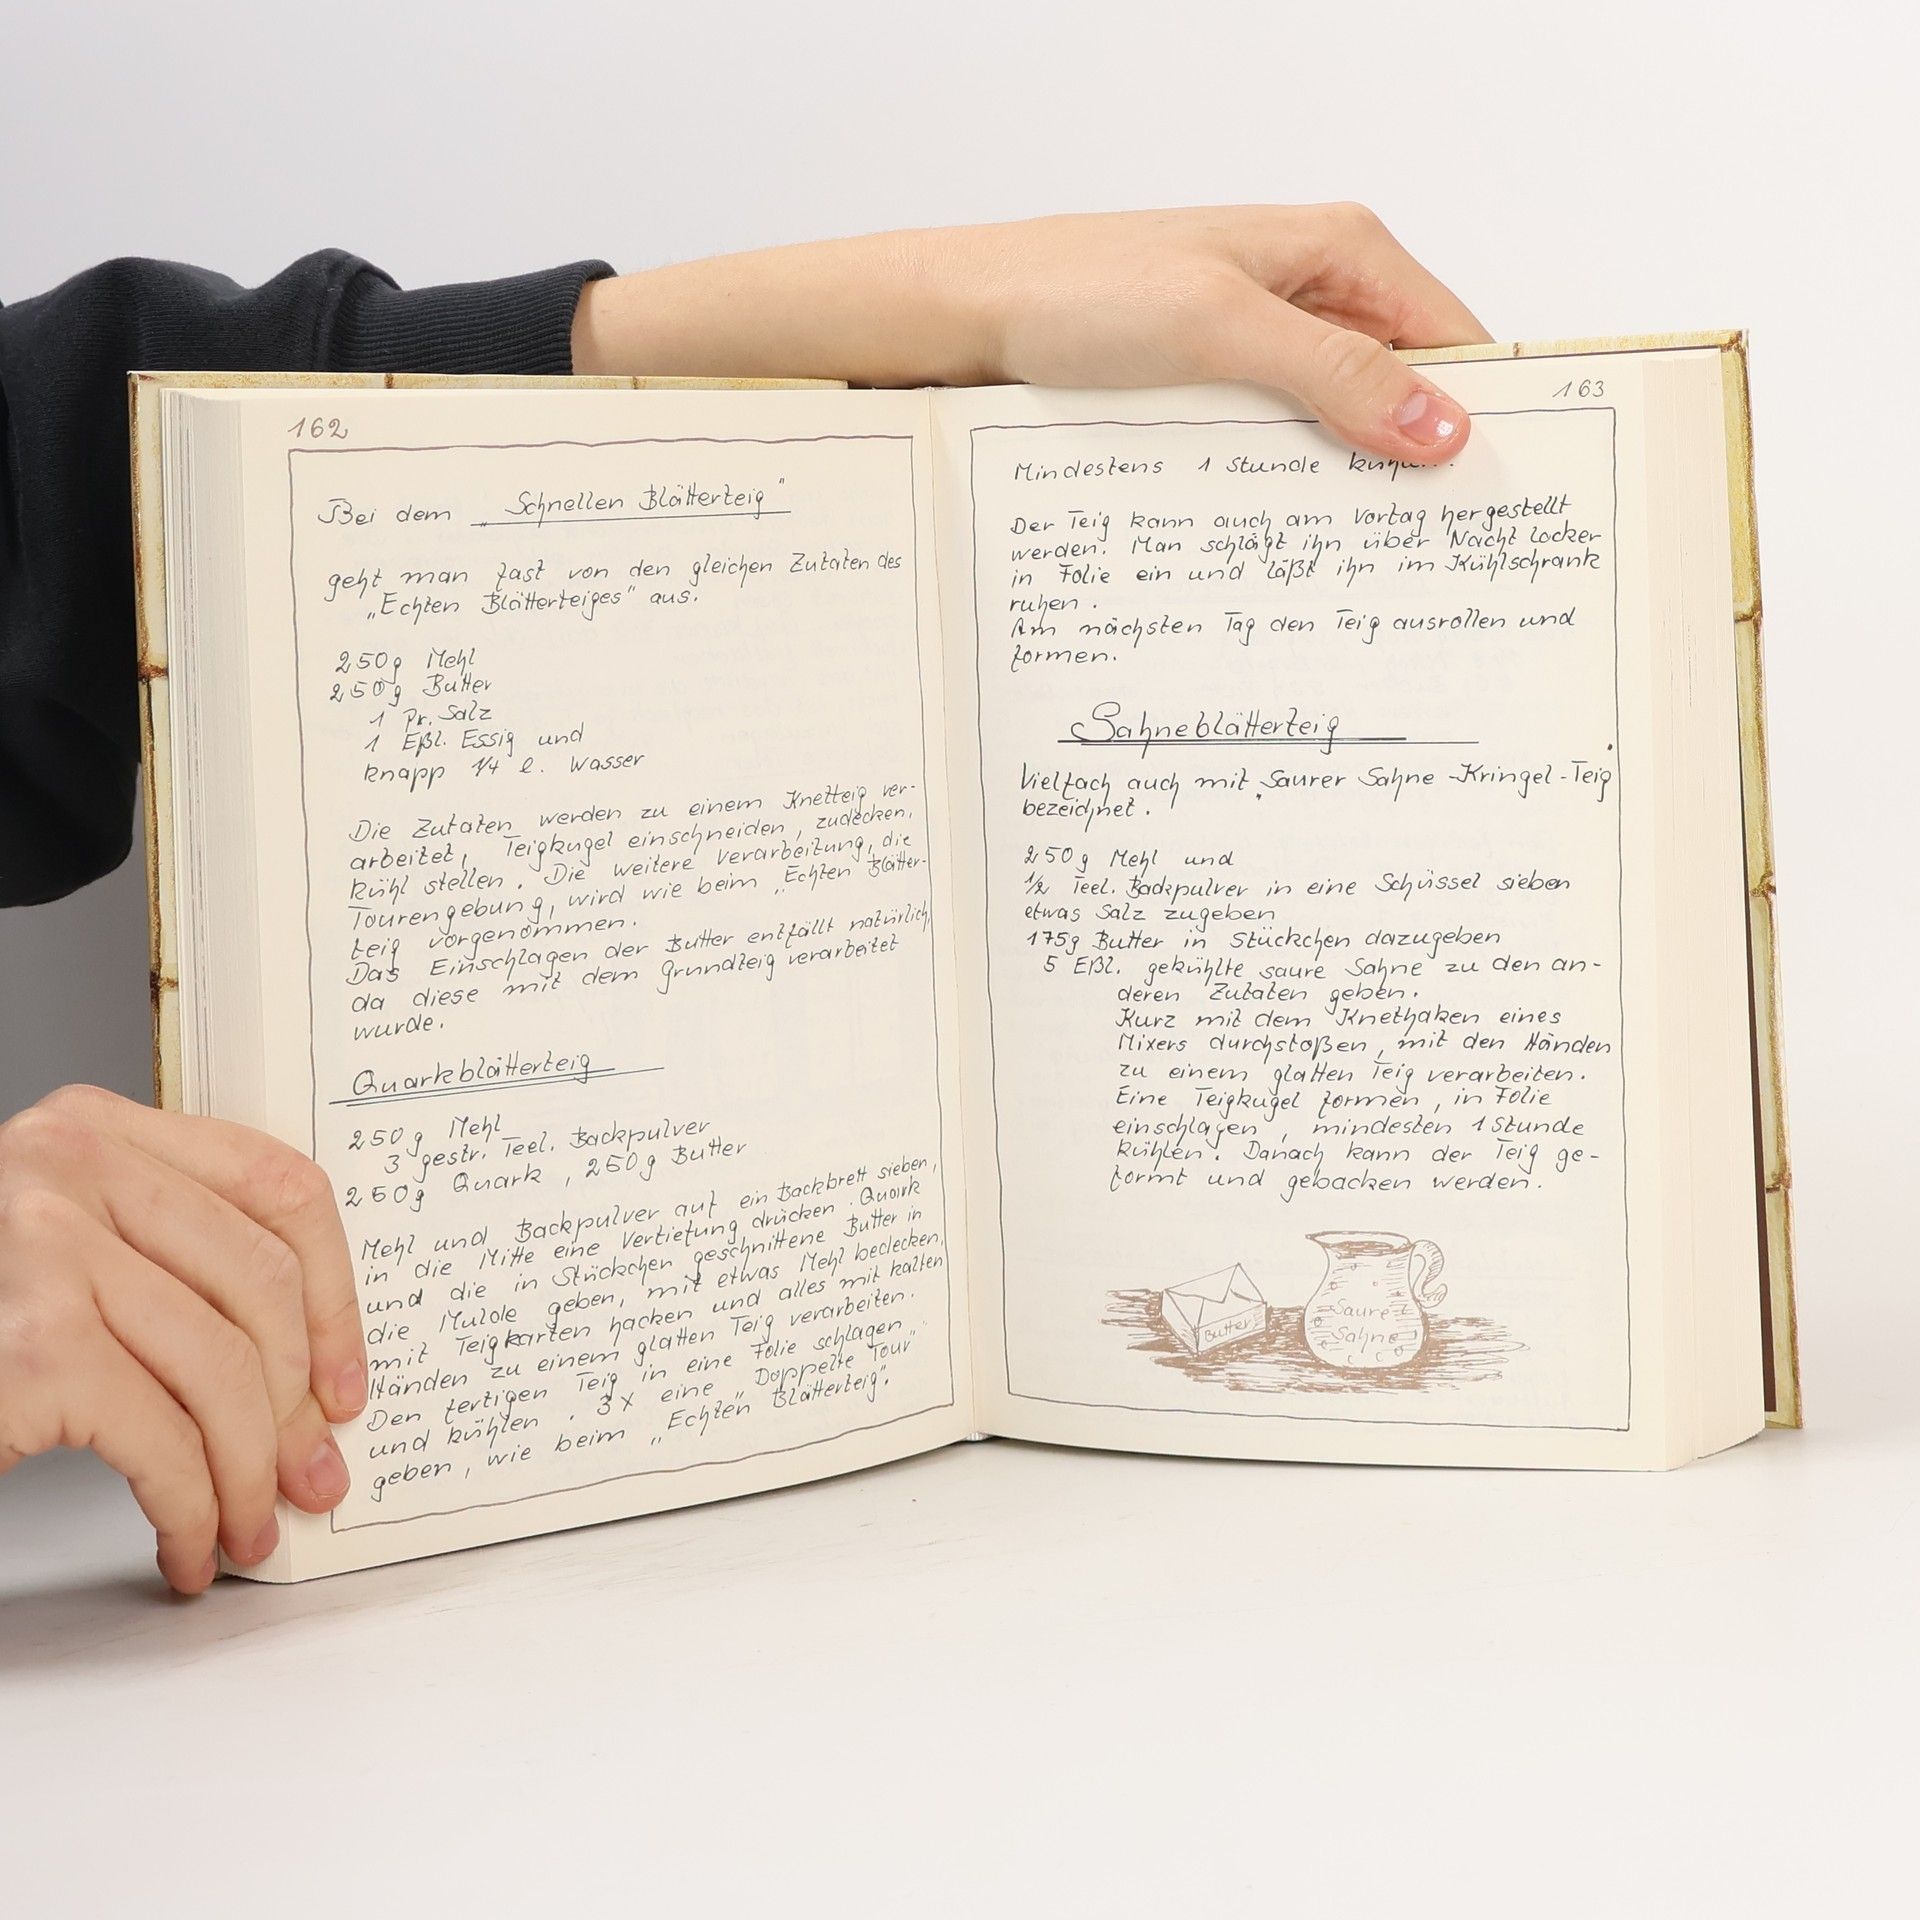 162
Bei dem „Schnellen Blätterteig"
geht man fast von den gleichen Zutaten des
„Echten Blätterteiges" aus.
250g Mehl
250g Butter
1 Pr. Salz
1 Eßl. Essig und
knapp 1/4 l. Wasser
Die Zutaten werden zu einem Knetteig ver-
arbeitet, Teigkugel einschneiden, zudecken,
kühl stellen. Die weitere Verarbeitung, die
Tourengebung, wird wie beim „Echten Blätter-
teig vorgenommen.
Das Einschlagen der Butter entfällt natürlich,
da diese mit dem Grundteig verarbeitet
wurde.
Quarkblätterteig
250g Mehl
3 gestr. Teel. Backpulver
250g Quark, 250g Butter
Mehl und Backpulver auf ein Backbrett sieben,
in die Mitte eine Vertiefung drücken. Quark
und die in Stückchen geschnittene Butter in
die Mulde geben, mit etwas Mehl bedecken,
mit Teigkarten hacken und alles mit kalten
Händen zu einem glatten Teig verarbeiten.
Den fertigen Teig in eine Folie schlagen
und kühlen. 3x eine „Doppelte Tour"
geben, wie beim „Echten Blätterteig".
163
Mindestens 1 Stunde
Der Teig kann auch am Vortag hergestellt
werden. Man schlägt ihn über Nacht locker
in Folie ein und läßt ihn im Kühlschrank
ruhen.
Am nächsten Tag den Teig ausrollen und
formen.
Sahneblätterteig
Vielfach auch mit Saurer Sahne-Kringel-Teig
bezeichnet.
250g Mehl und
1/2 Teel. Backpulver in eine Schüssel sieben
etwas Salz zugeben
175g Butter in Stückchen dazugeben
5 Eßl. gekühlte saure Sahne zu den an-
deren Zutaten geben.
Kurz mit dem Knethaken eines
Mixers durchstoßen, mit den Händen
zu einem glatten Teig verarbeiten.
Eine Teigkugel formen, in Folie
einschlagen, mindesten 1 Stunde
kühlen. Danach kann der Teig ge-
formt und gebacken werden.
Butter
Saure
Sahne